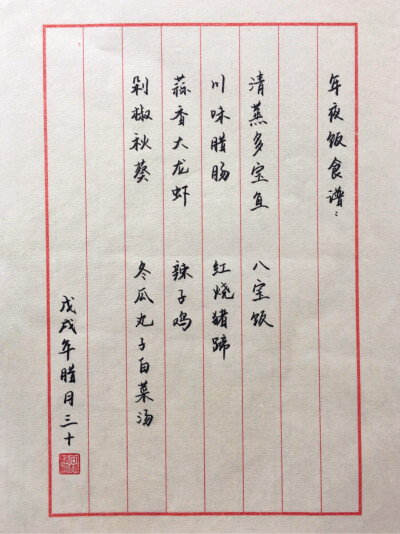 年夜饭食谱：
清蒸多宝鱼 八宝饭
川味腊肠 红烧猪蹄
蒜香大龙虾 辣子鸡
剁椒秋葵 冬瓜丸子白菜汤
戊戌年腊月三十